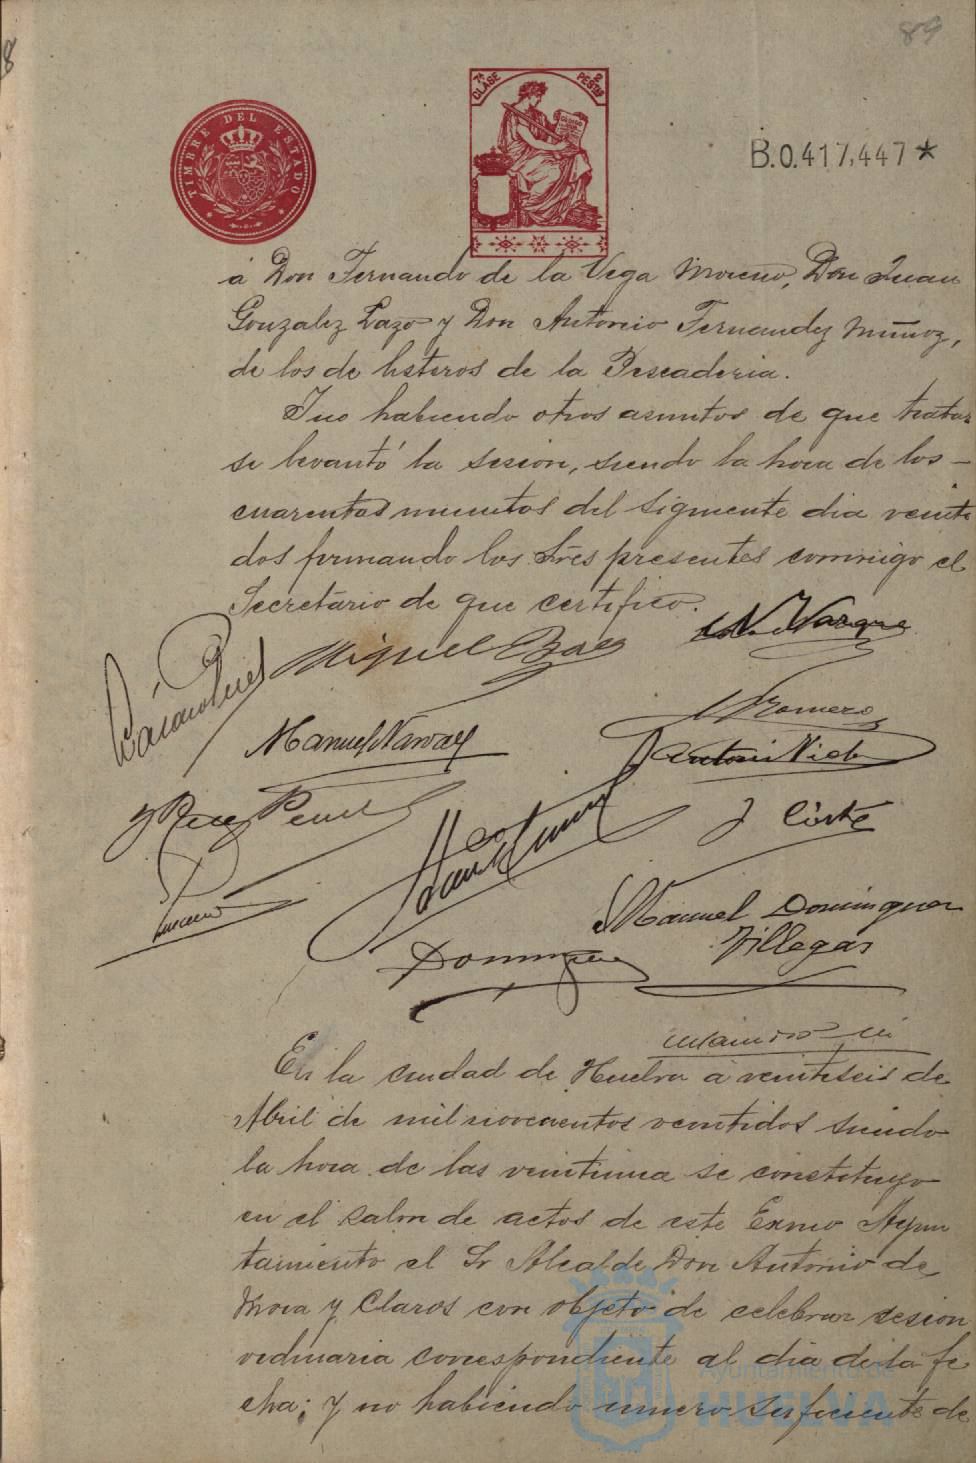 89
8
TIMBRE DEL ESTADO
7ª CLASE
2 PESTAS
B.0.417,447*
á Don Fernando de la Vega Moreno, Don Juan
Gonzalez Lazo y Don Antonio Fernandez Muñoz,
de los de Esteros de la Pescaderia.
Y no habiendo otros asuntos de que tratar
se levantó la sesion, siendo la hora de los
cuarenta minutos del siguiente dia veinte
dos firmando los Sres presentes conmigo el
Secretario de que certifico.
Miguel Baez
Vazquez
Manuel Narvaez
Romero
Antonio Nieto
J Perez
J Corte
Manuel Dominguez
Villegas
Dominguez
En la ciudad de Huelva a veinteseis de
Abril de mil novecientos veintidos siendo
la hora de las veintiuna se constituyo
en el salon de actos de este Exmo Ayun
tamiento el Sr Alcalde Don Antonio de
Mora y Claros con objeto de celebrar sesion
ordinaria correspondiente al dia de la fe
cha; y no habiendo numero suficiente de
Ayuntamiento de
HUELVA